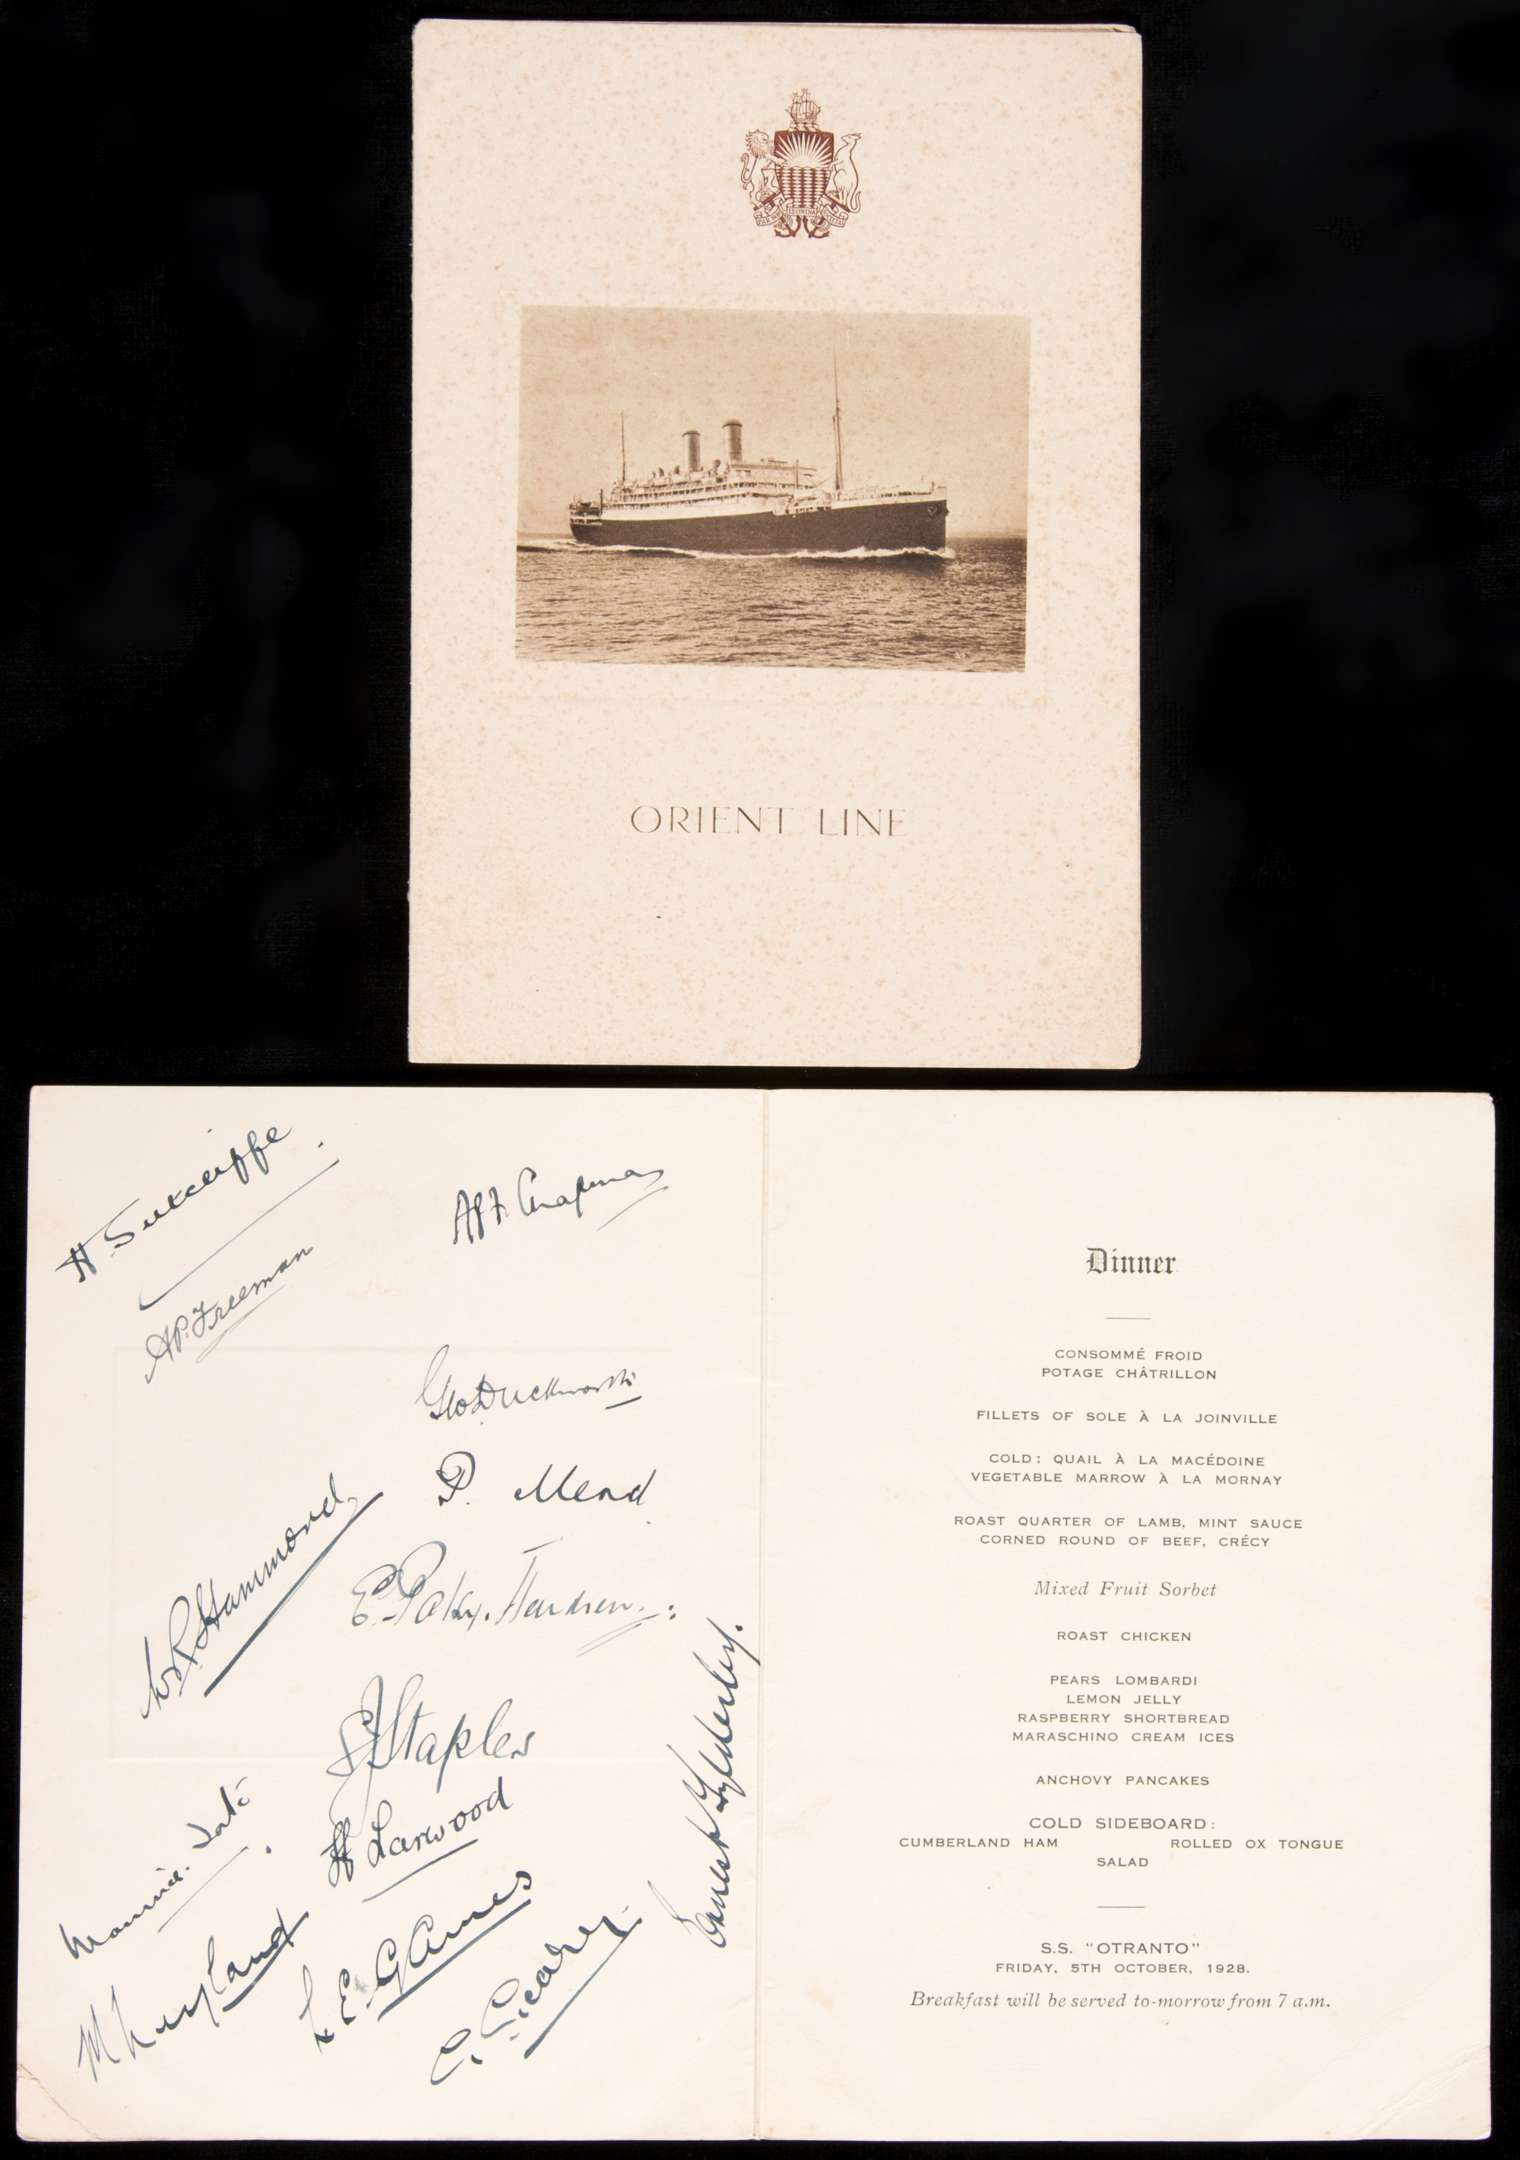 ORIENT LINE
H Sutcliffe
A.P.F. Chapman
A.P. Freeman
Geo Duckworth
P. Mead
W.R. Hammond
E. Patsy. Hendren
S J Staples
H Larwood
Maurice. Tate
M Leyland
L. E. G. Ames
G. Geary
Ernest Tyldesley.
Dinner
CONSOMMÉ FROID
POTAGE CHÂTRILLON
FILLETS OF SOLE À LA JOINVILLE
COLD: QUAIL À LA MACÉDOINE
VEGETABLE MARROW À LA MORNAY
ROAST QUARTER OF LAMB, MINT SAUCE
CORNED ROUND OF BEEF, CRÉCY
Mixed Fruit Sorbet
ROAST CHICKEN
PEARS LOMBARDI
LEMON JELLY
RASPBERRY SHORTBREAD
MARASCHINO CREAM ICES
ANCHOVY PANCAKES
COLD SIDEBOARD:
CUMBERLAND HAM ROLLED OX TONGUE
SALAD
S.S. "OTRANTO"
FRIDAY, 5TH OCTOBER, 1928.
Breakfast will be served to-morrow from 7 a.m.